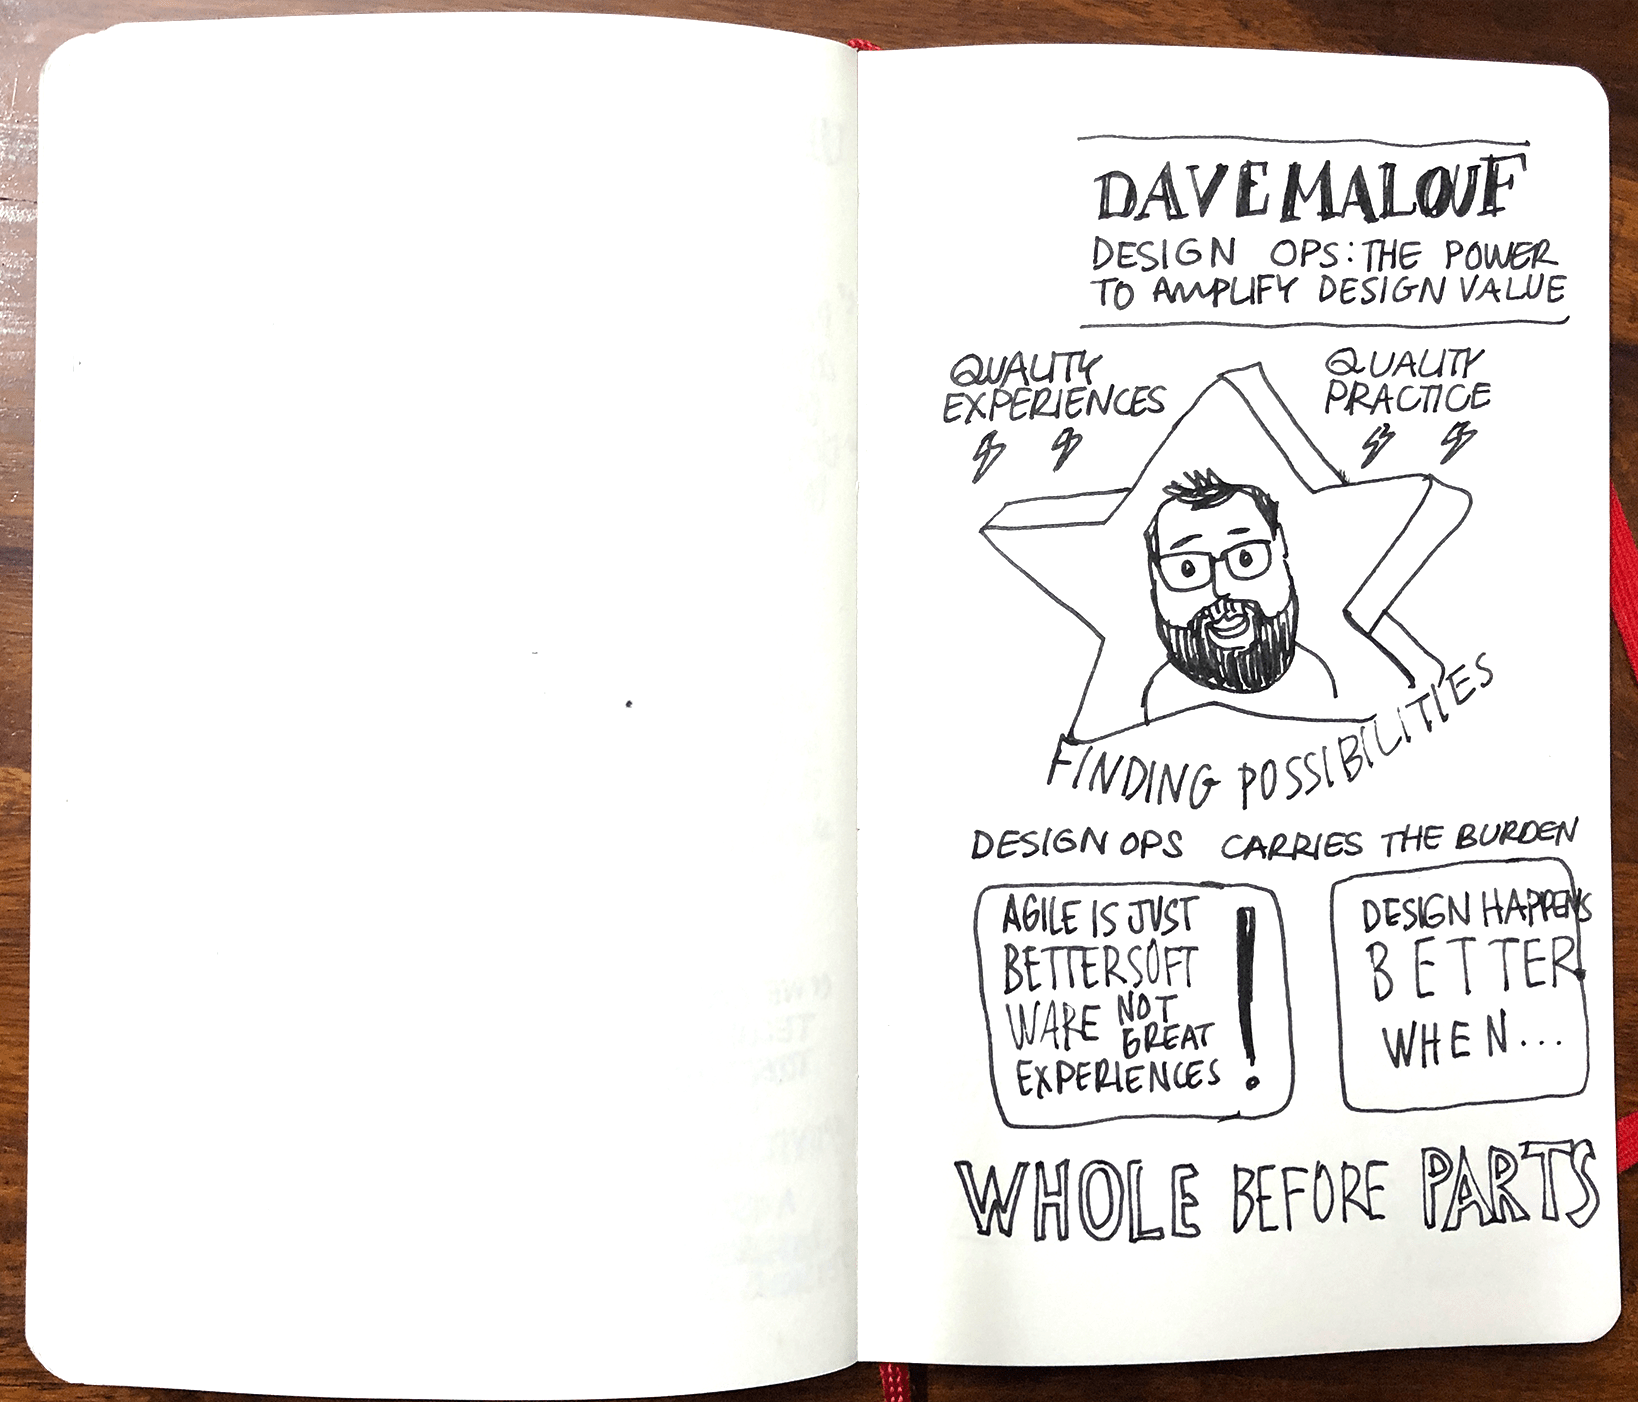 DAVE MALOUF
DESIGN OPS: THE POWER
TO AMPLIFY DESIGN VALUE
QUALITY
EXPERIENCES
QUALITY
PRACTICE
FINDING POSSIBILITIES
DESIGN OPS CARRIES THE BURDEN
AGILE IS JUST
BETTER SOFT
WARE NOT
GREAT
EXPERIENCES
!
DESIGN HAPPENS
BETTER
WHEN...
WHOLE BEFORE PARTS